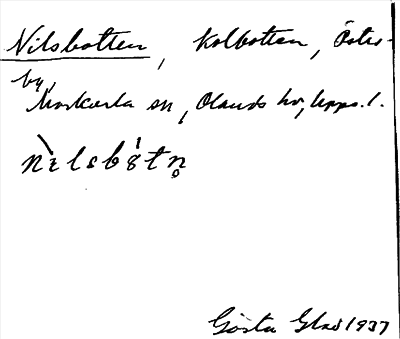 Nilsbotten, kolbotten, Öster-
by,
Morkarla sn, Olands hd, Upps. l.
nìlsbótn̥
Gösta Glad 1937